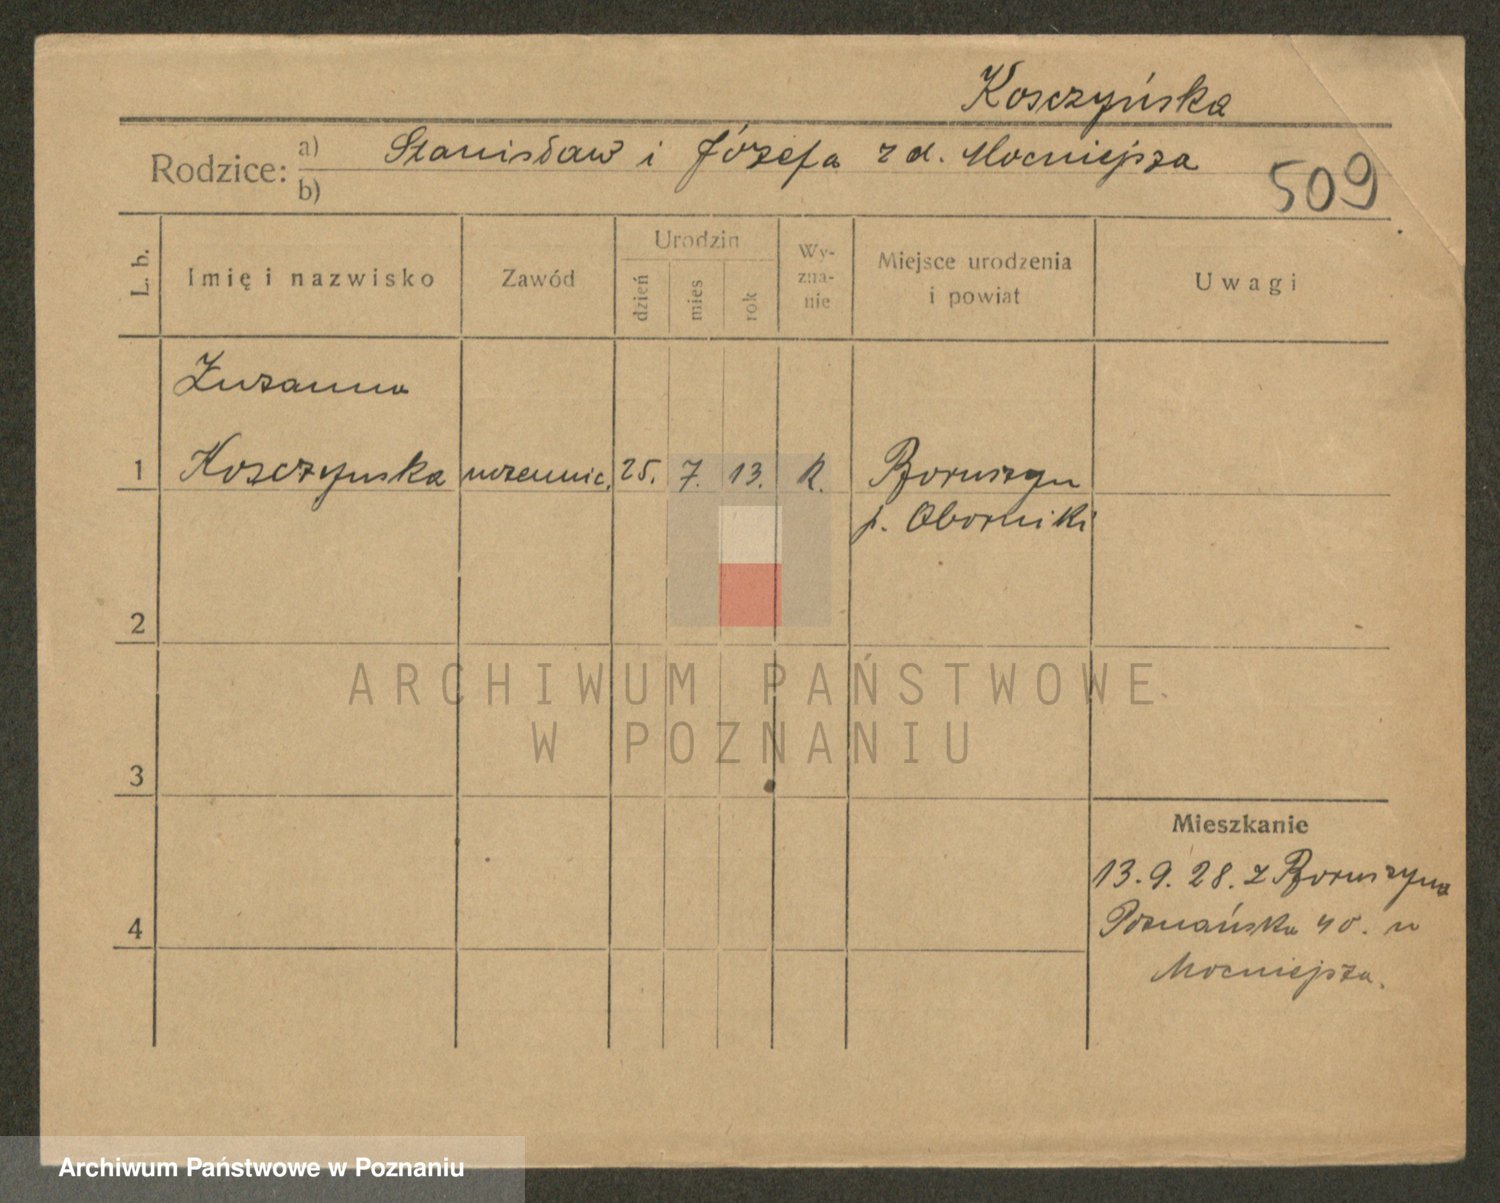 Kosczyńska
Rodzice: a) Stanisław i Józefa z d. Mocniejsza
b)
509
L. b.
Imię i nazwisko
Zawód
Urodzin
dzień
mies
rok
Wy-
zna-
nie
Miejsce urodzenia
i powiat
Uwagi
Zuzanna
1 Kosczynska uczennic. 25. 7. 13. R. Boruszyn
p. Oborniki
2
3
4
Mieszkanie
13.9.28. z Boruszyna
Poznańska 40. u
Mocniejsza.
ARCHIWUM PAŃSTWOWE
W POZNANIU
Archiwum Państwowe w Poznaniu